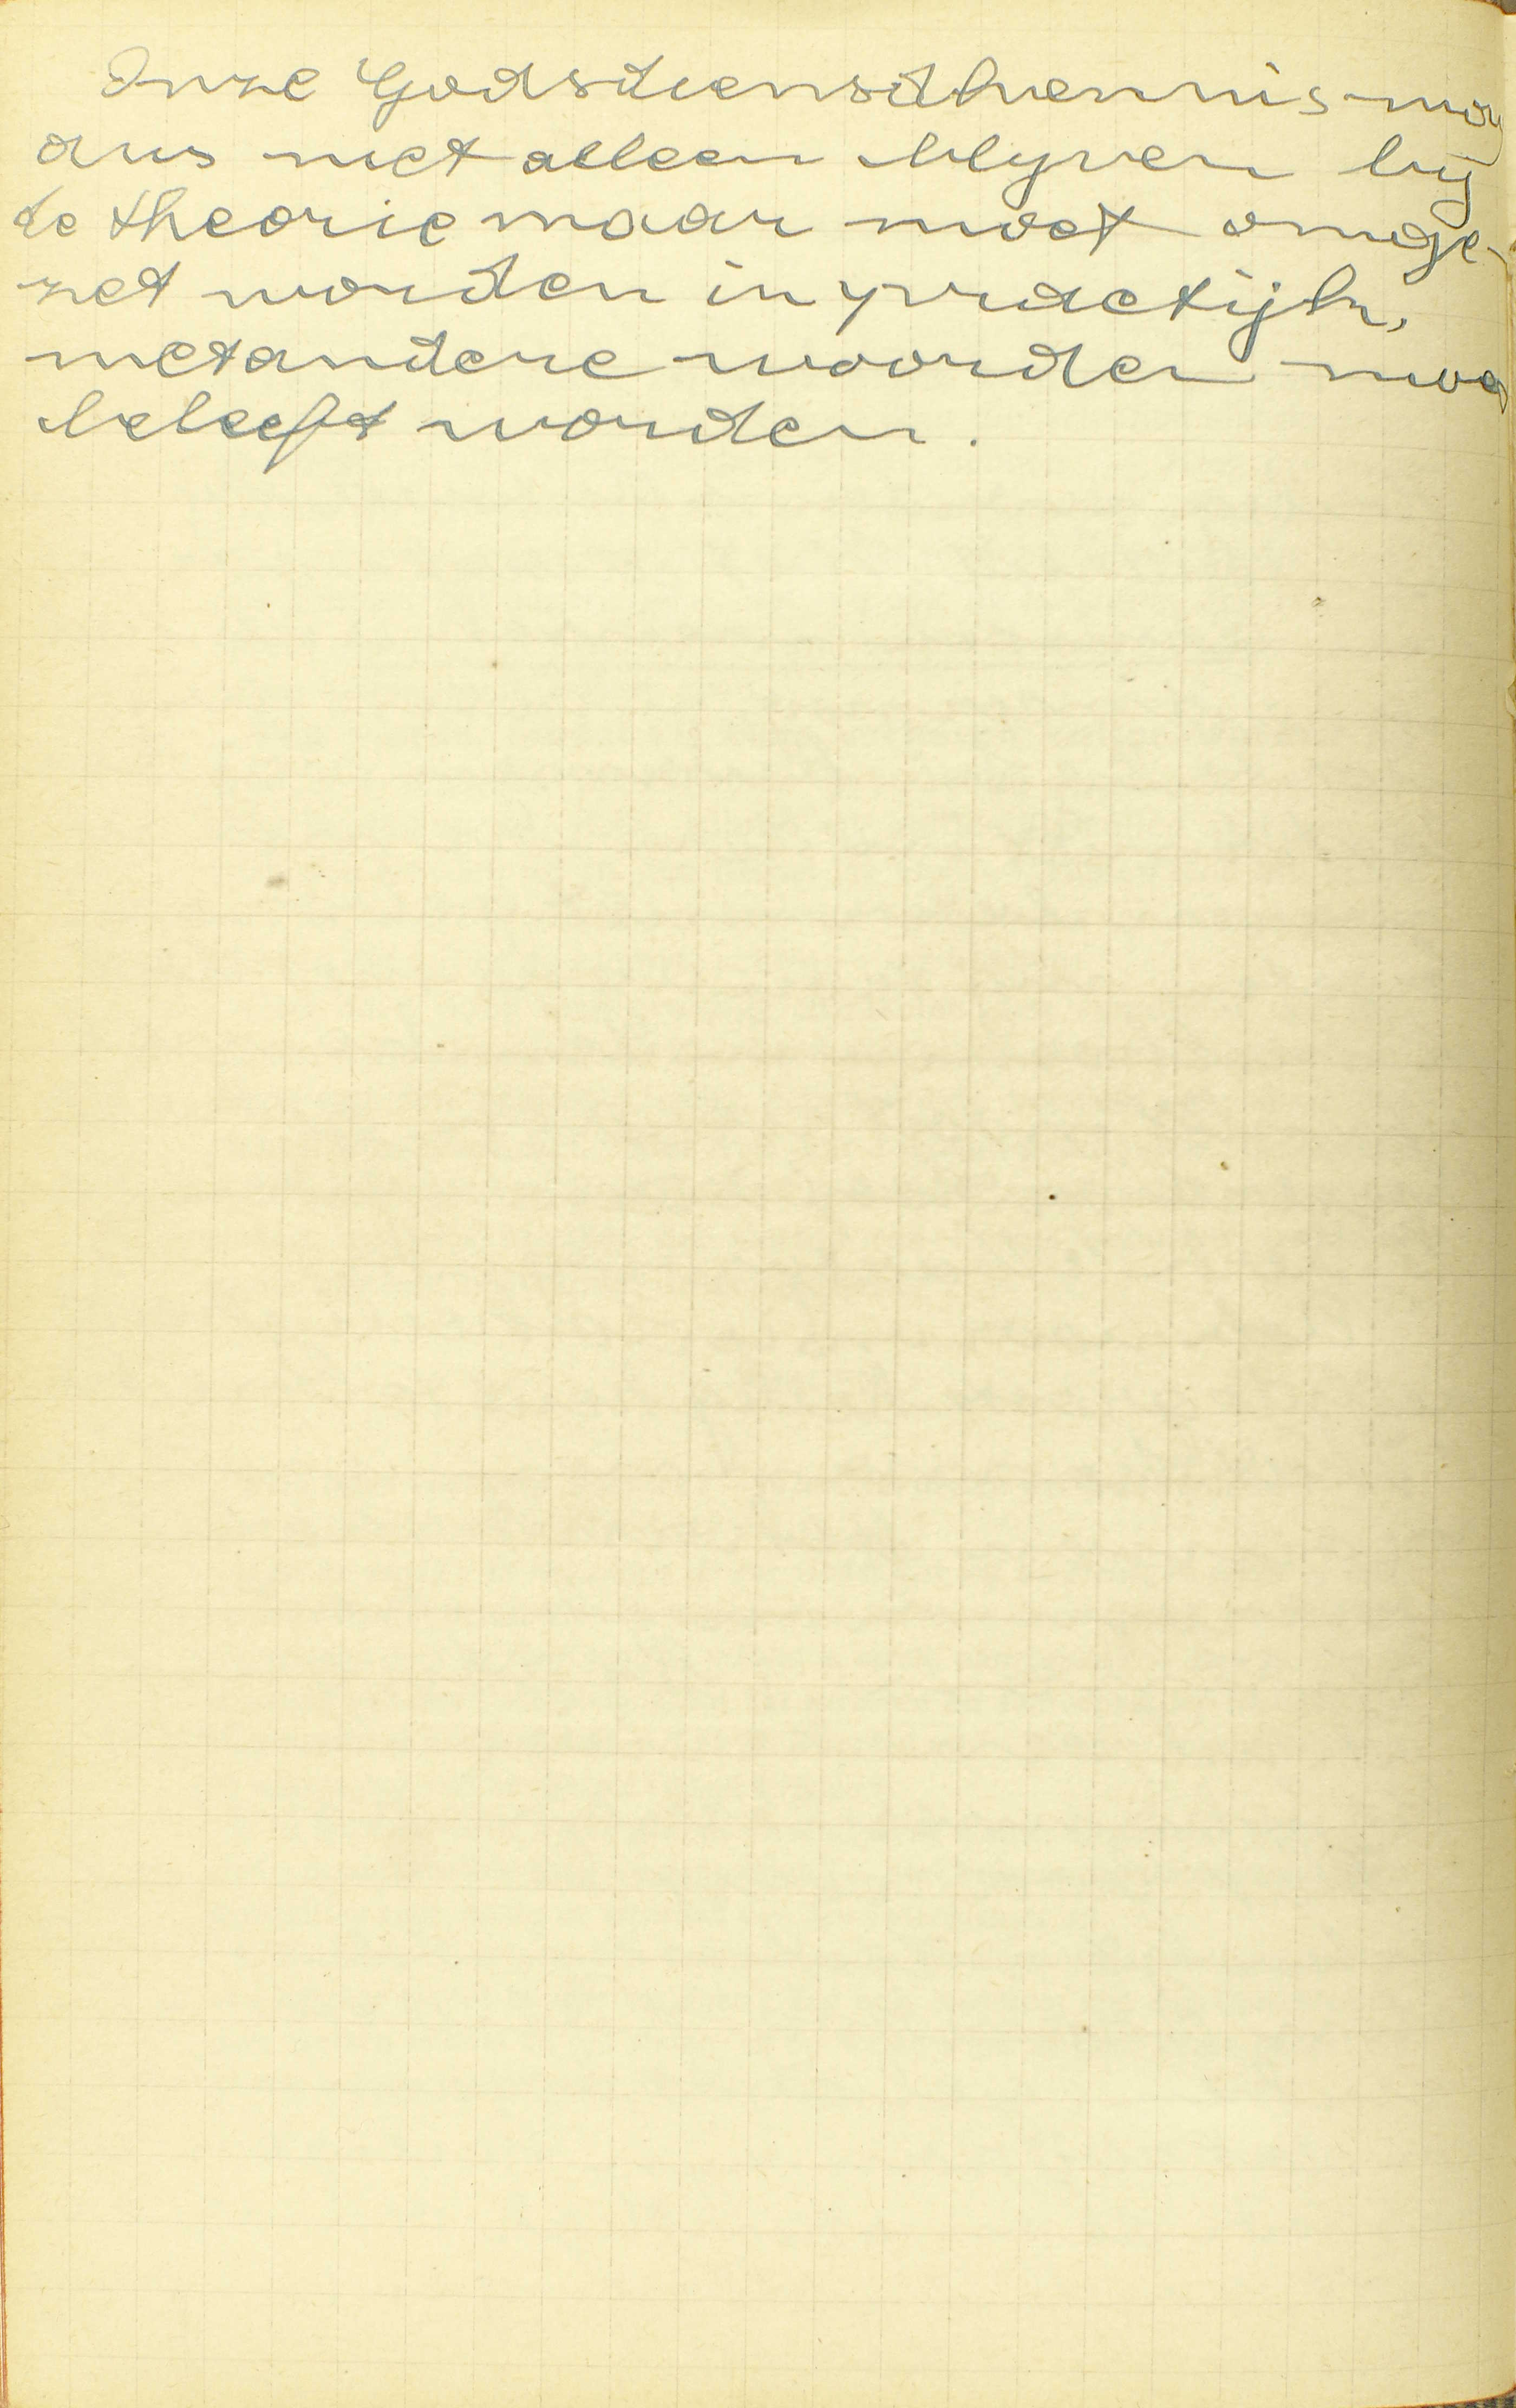 Onze Godsdienstkennis mag
dus niet alleen blijven bij
de theorie maar moet omge-
zet worden in practijk,
met andere woorden moet
beleeft worden.